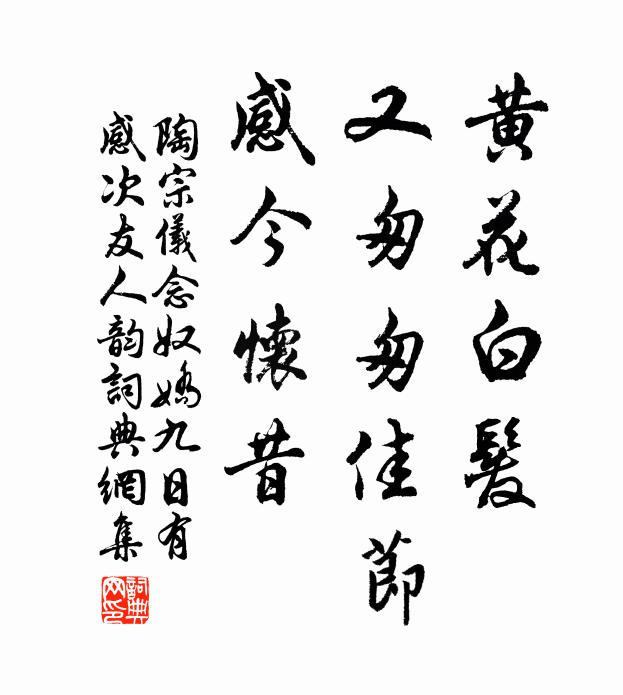 黄花白髮
又匆匆佳節
感今懷昔
陶宗儀念奴嬌九日有
感次友人韵詞典網集
詞典
网印